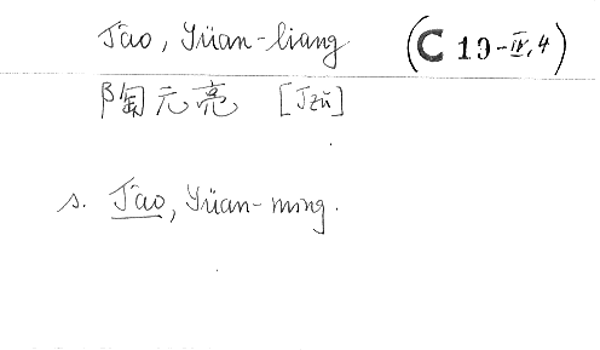 T'ao, Yüan-liang (C 19-IV,4)
陶元亮 [Tzŭ]
s. T'ao, Yüan-ming.